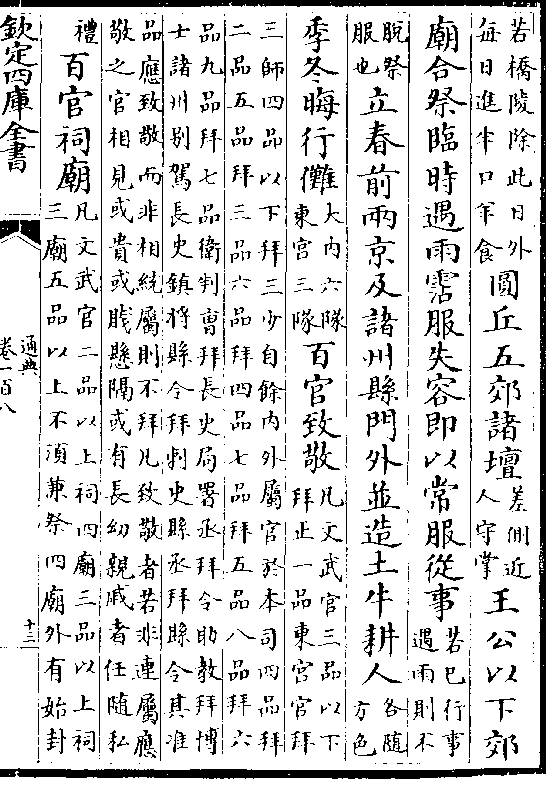 若橋陵除此日外
每日進半口軍食
圜丘五郊諸壇
差側近
人守掌
王公以下郊
廟合祭臨時遇雨霑服失容即以常服從事
若已行事
遇雨則不
脫祭
服也
立春前兩京及諸州縣門外並造土牛耕人
各隨
方色
季冬晦行儺
大内六隊
東宮三隊
百官致敬
凡文武官三品以下
拜正一品東宮官拜
三師四品以下拜三少自餘内外屬官於本司四品拜
二品五品拜三品六品拜四品七品拜五品八品拜六
品九品拜七品衛判曹拜長史局署丞拜令助教拜博
士諸州别駕長史鎮將縣令拜刺史縣丞拜縣令其准
品應致敬而非相統屬則不拜凡致敬者若非連屬應
敬之官相見或貴或賤懸隔或有長幼親戚者任隨私
禮
百官祠廟
凡文武官二品以上祠四廟三品以上祠
三廟五品以上不須兼祭四廟外有始封
欽定四庫全書
通典
卷一百八
十三